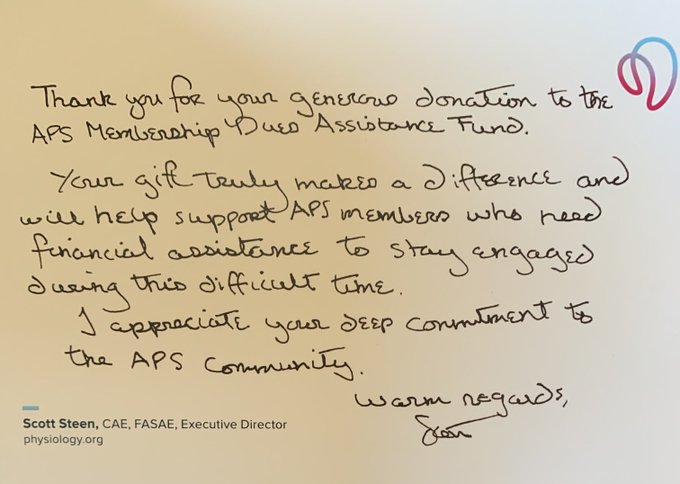 Thank you for your generous donation to the
APS Membership Dues Assistance Fund.
Your gift truly makes a difference and
will help support APS members who need
financial assistance to stay engaged
during this difficult time.
I appreciate your deep commitment to
the APS Community.
Warm regards,
Scott
Scott Steen, CAE, FASAE, Executive Director
physiology.org